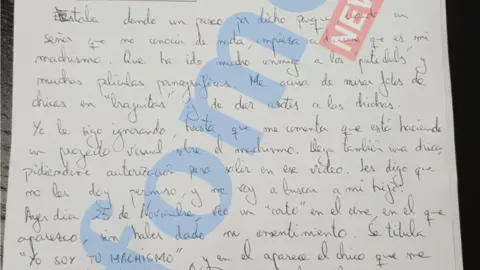 Estaba dando un paseo ya dicho parque, cuando un
señor que me conocía de nada, empieza a decirme que es mi
machismo. Que ha ido mucho conmigo a los "puticlubs" y
muchas películas pornográficas. Me acusa de mirar fotos de
chicas en "braguitas" y de dar azotes a las chicas.
Yo le sigo ignorando, hasta que me comenta que está haciendo
un proyecto visual sobre el machismo. Llega también una chica,
pidiendome autorización para salir en ese video. Les digo que
no les doy permiso, y me voy a buscar a mi hijo.
Ayer día 25 de Noviembre, veo un "corto" en el cine, en el que
aparezco, sin haber dado mi consentimiento. Se titula
"YO SOY TU MACHISMO" y en el aparece el chico que me
NEW